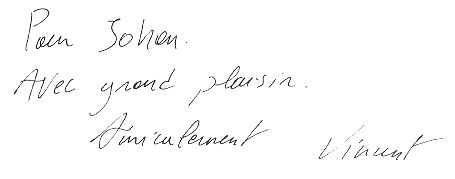 Pour Johan.
Avec grand plaisir.
Amicalement Vincent